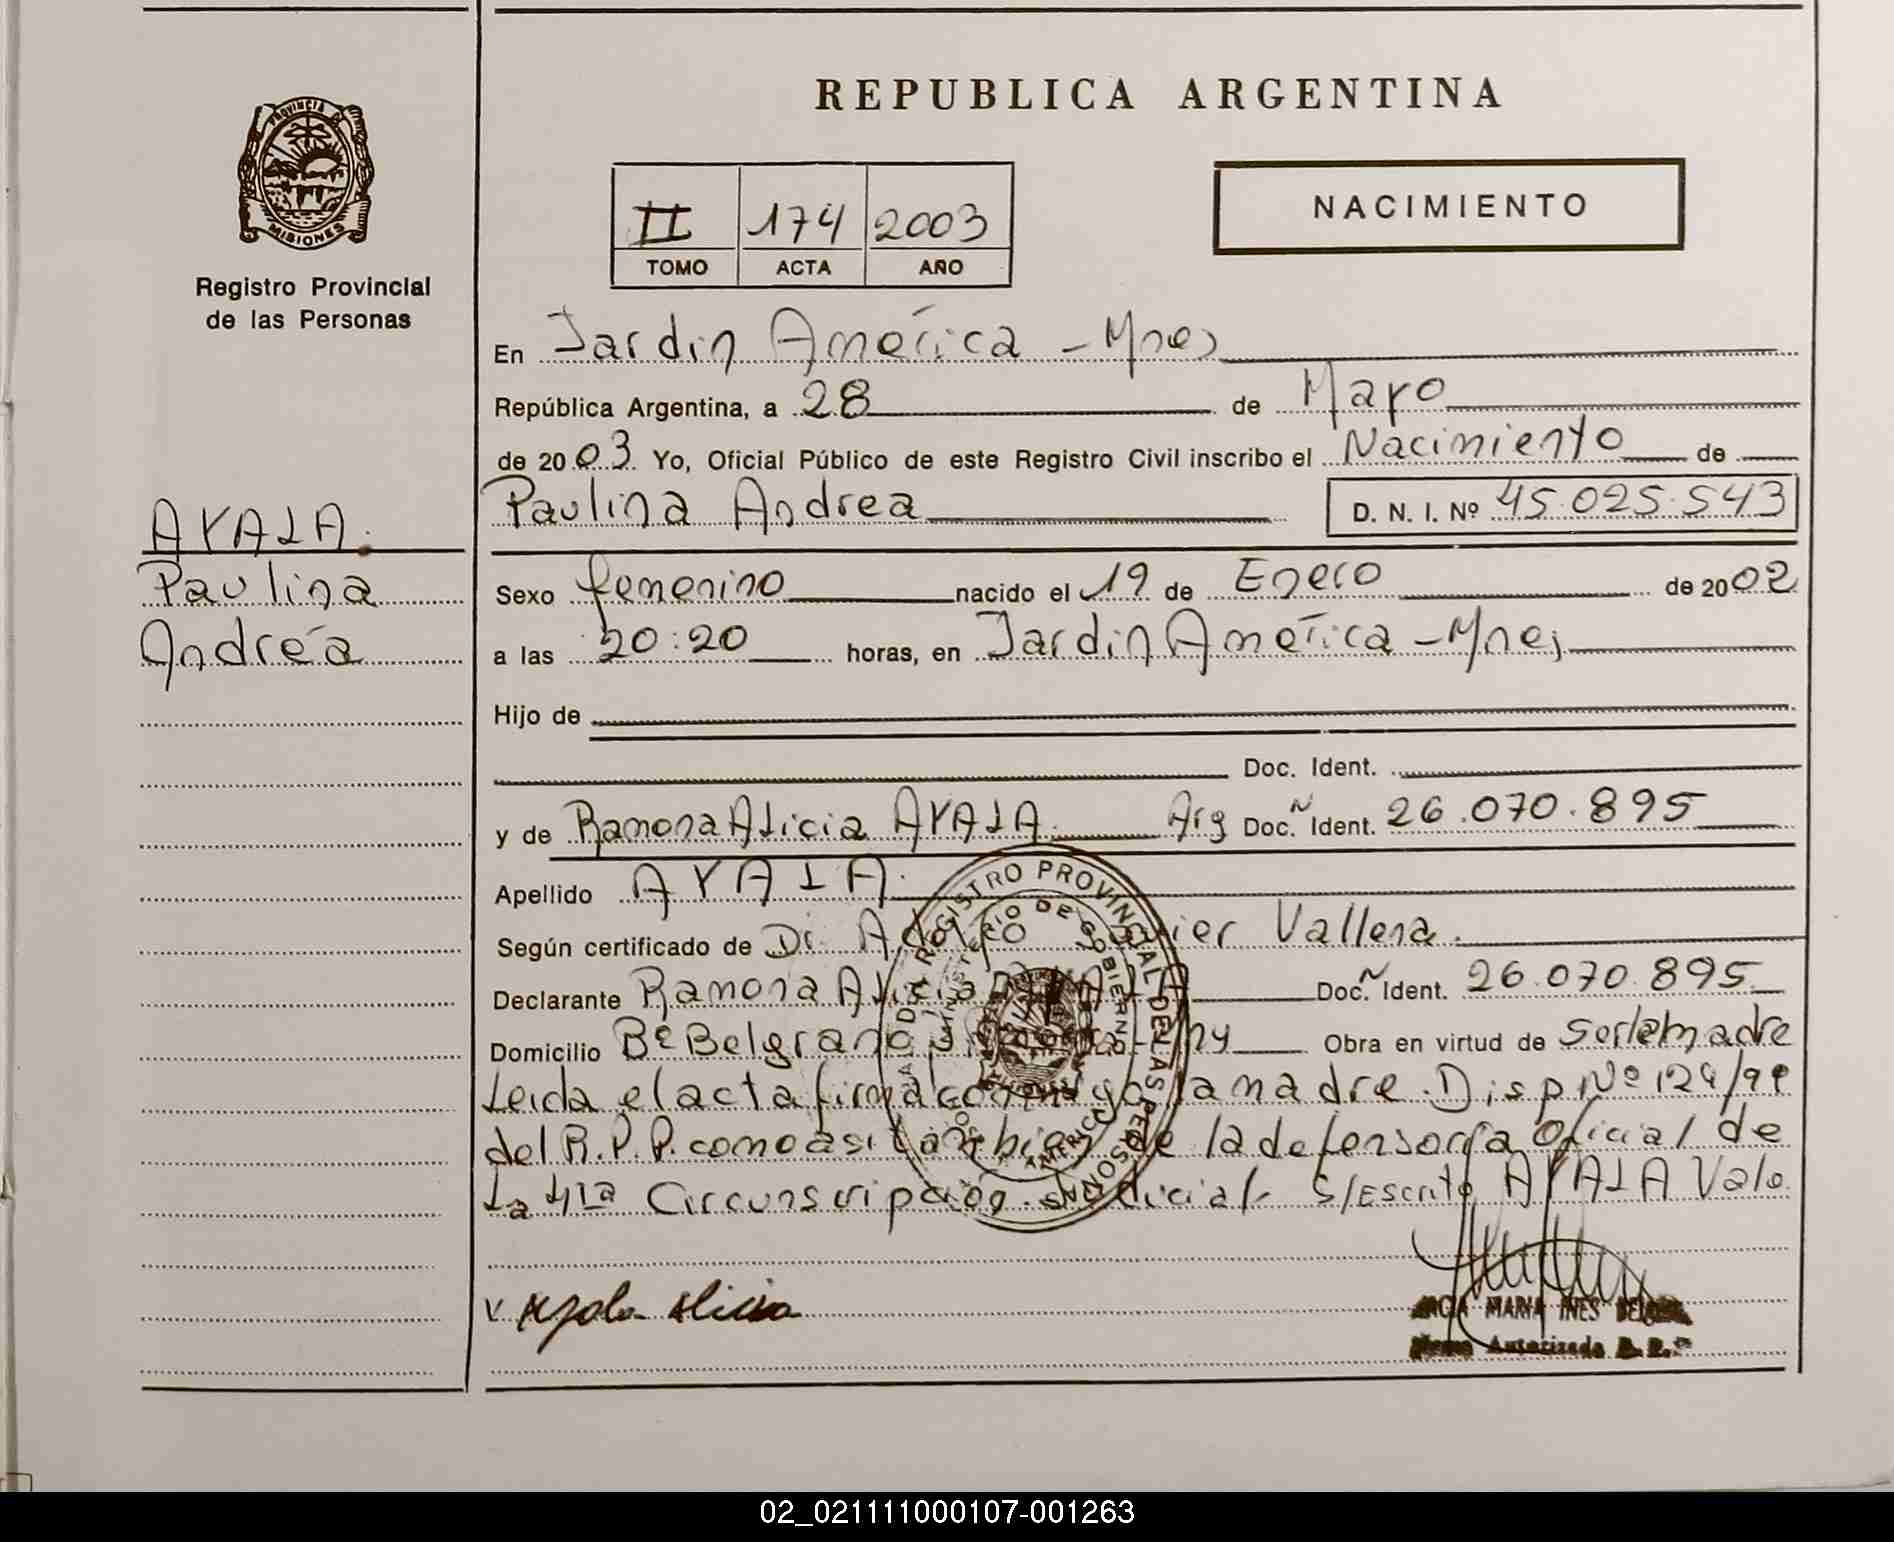 REPUBLICA ARGENTINA
PROVINCIA DE
MISIONES
Registro Provincial
de las Personas
II 174 2003
TOMO ACTA AÑO
NACIMIENTO
En Jardin América - Mnes
República Argentina, a 28 de Mayo
de 2003 Yo, Oficial Público de este Registro Civil inscribo el Nacimiento de
Paulina Andrea D. N. I. Nº 45.025.543
AYALA.
Paulina
Andréa
Sexo femenino nacido el 19 de Enero de 2002
a las 20:20 horas, en Jardin América - Mnes
Hijo de
Doc. Ident.
y de Ramona Alicia AYALA. Arg Doc. Ident. 26.070.895
Apellido AYALA.
Según certificado de Dr. Vallena.
Declarante Ramona Alicia Doc. Ident. 26.070.895
Domicilio Bº Belgrano Obra en virtud de Ser la Madre
Leida el acta firma la madre. Disp. Nº 124/99
del R.P.P. como asi tambien de la defensoria Oficial de
La 4ta Circunscripción Judicial. S/Escrito AYALA Vale.
REGISTRO PROVINCIAL DE LAS PERSONAS
MINISTERIO DE GOBIERNO
AMERICA
MARIA INES
Autorizada
02_021111000107-001263